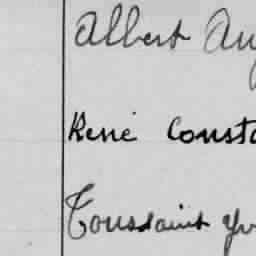 Albert Au
René Const
Toussaint Yv